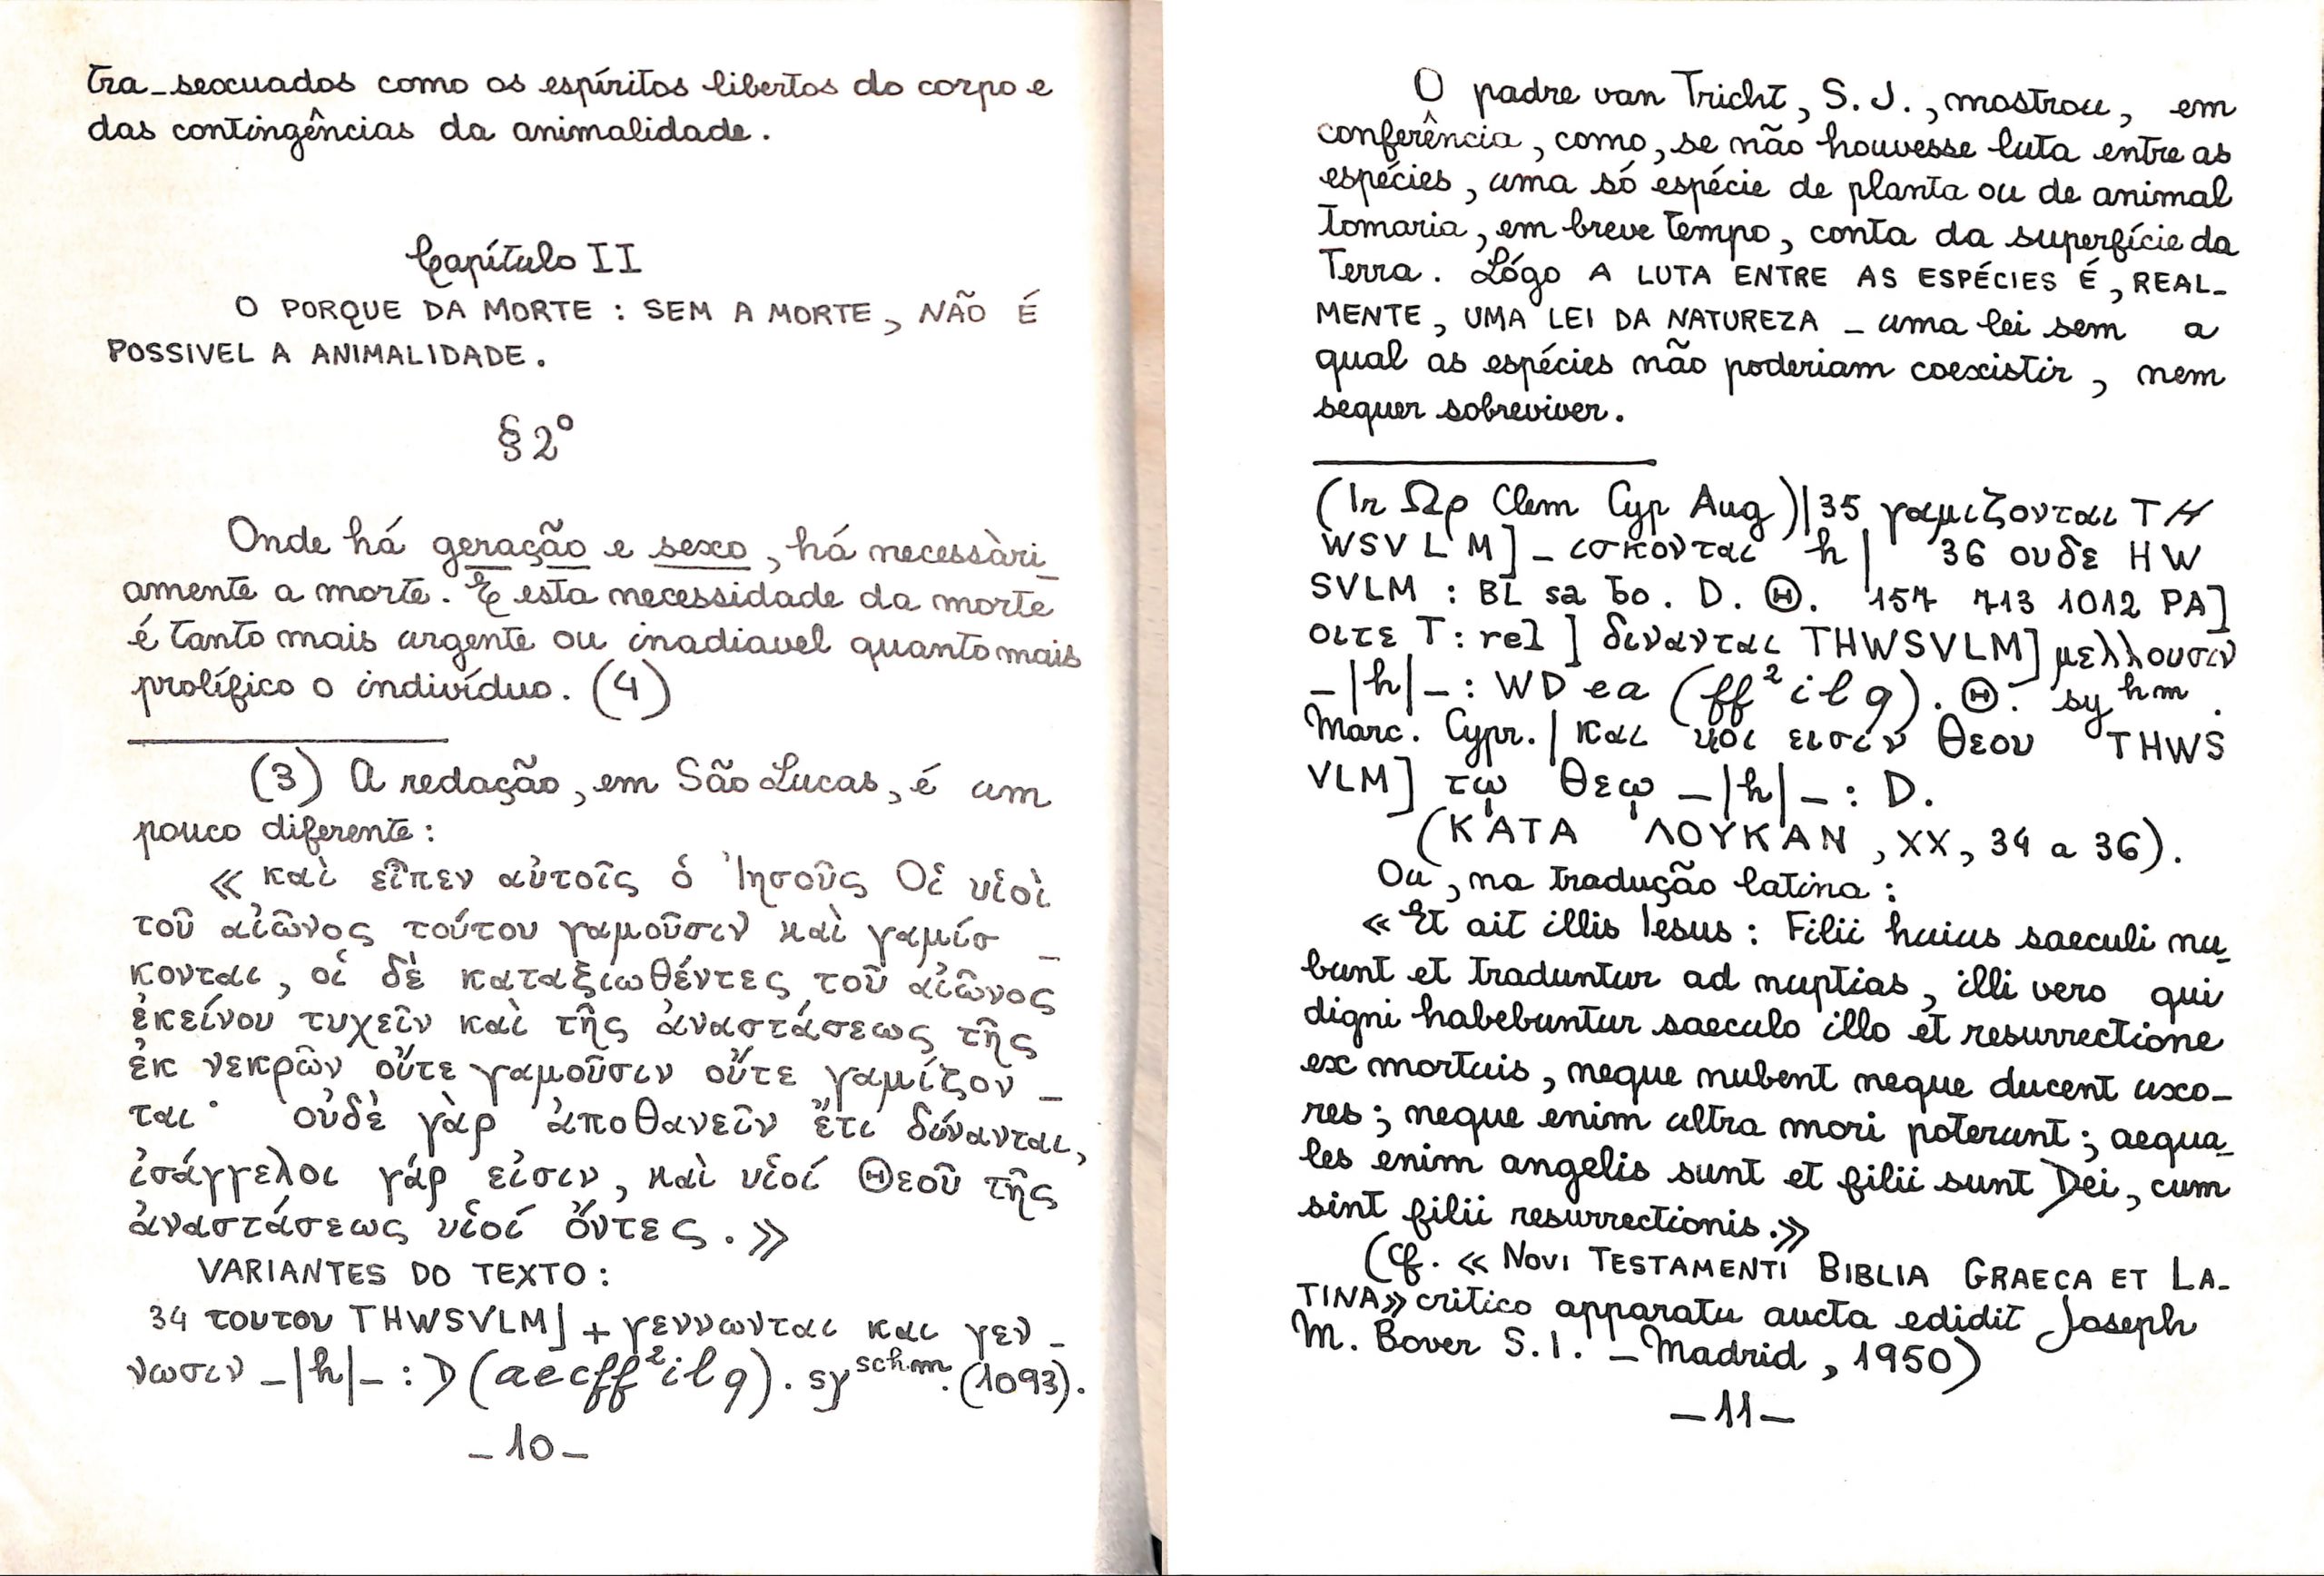 tra-sexuados como os espíritos libertos do corpo e
das contingências da animalidade.
Capítulo II
O PORQUE DA MORTE : SEM A MORTE, NÃO É
POSSIVEL A ANIMALIDADE.
§ 2º
Onde há geração e sexo, há necessàri_
amente a morte. E esta necessidade da morte
é tanto mais urgente ou inadiavel quanto mais
prolífico o indivíduo. (4)
(3) A redação, em São Lucas, é um
pouco diferente:
« καὶ εἶπεν αὐτοῖς ὁ Ἰησοῦς Οἱ υἱοὶ
τοῦ αἰῶνος τούτου γαμοῦσιν καὶ γαμίσ_
κονται, οἱ δὲ καταξιωθέντες τοῦ αἰῶνος
ἐκείνου τυχεῖν καὶ τῆς ἀναστάσεως τῆς
ἐκ νεκρῶν οὔτε γαμοῦσιν οὔτε γαμίζον_
ται· οὐδὲ γὰρ ἀποθανεῖν ἔτι δύνανται,
ἰσάγγελοι γάρ εἰσιν, καὶ υἱοί Θεοῦ τῆς
ἀναστάσεως υἱοί ὄντες. »
VARIANTES DO TEXTO:
34 τουτου THWSVLM] + γεννωνται και γεν_
νωσιν _|h|_ : D (aecff²ilq). sy sch.m. (1093).
_10_
O padre van Tricht, S. J., mostrou, em
conferência, como, se não houvesse luta entre as
espécies, uma só espécie de planta ou de animal
tomaria, em breve tempo, conta da superfície da
Terra. Lógo A LUTA ENTRE AS ESPÉCIES É, REAL_
MENTE, UMA LEI DA NATUREZA _ uma lei sem a
qual as espécies não poderiam coexistir, nem
sequer sobreviver.
(Ir Ωρ Clem Cyp Aug)|35 γαμιζονται TH
WSVLM] _ισκονται h| 36 ουδε HW
SVLM : BL sa bo. D. Θ. 157 713 1012 PA]
οιτε T: rel] διναντai THWSVLM] μελλουσιν
_|h|_ : WD ea (ff²ilq). Θ. sy hm.
Marc. Cypr.| και υιοι εισιν θεου THWS
VLM] τῳ θεῳ _|h|_ : D.
(ΚΑΤΑ ΛΟΥΚΑΝ, XX, 34 a 36).
Ou, na tradução latina:
« Et ait illis Iesus: Filii huius saeculi nu_
bunt et traduntur ad nuptias, illi vero qui
digni habebuntur saeculo illo et resurrectione
ex mortuis, neque nubent neque ducent uxo_
res; neque enim ultra mori poterunt; aequa_
les enim angelis sunt et filii sunt Dei, cum
sint filii resurrectionis.»
(Cf. « NOVI TESTAMENTI BIBLIA GRAECA ET LA_
TINA» critico apparatu aucta edidit Joseph
M. Bover S.I. _ Madrid, 1950)
_11_